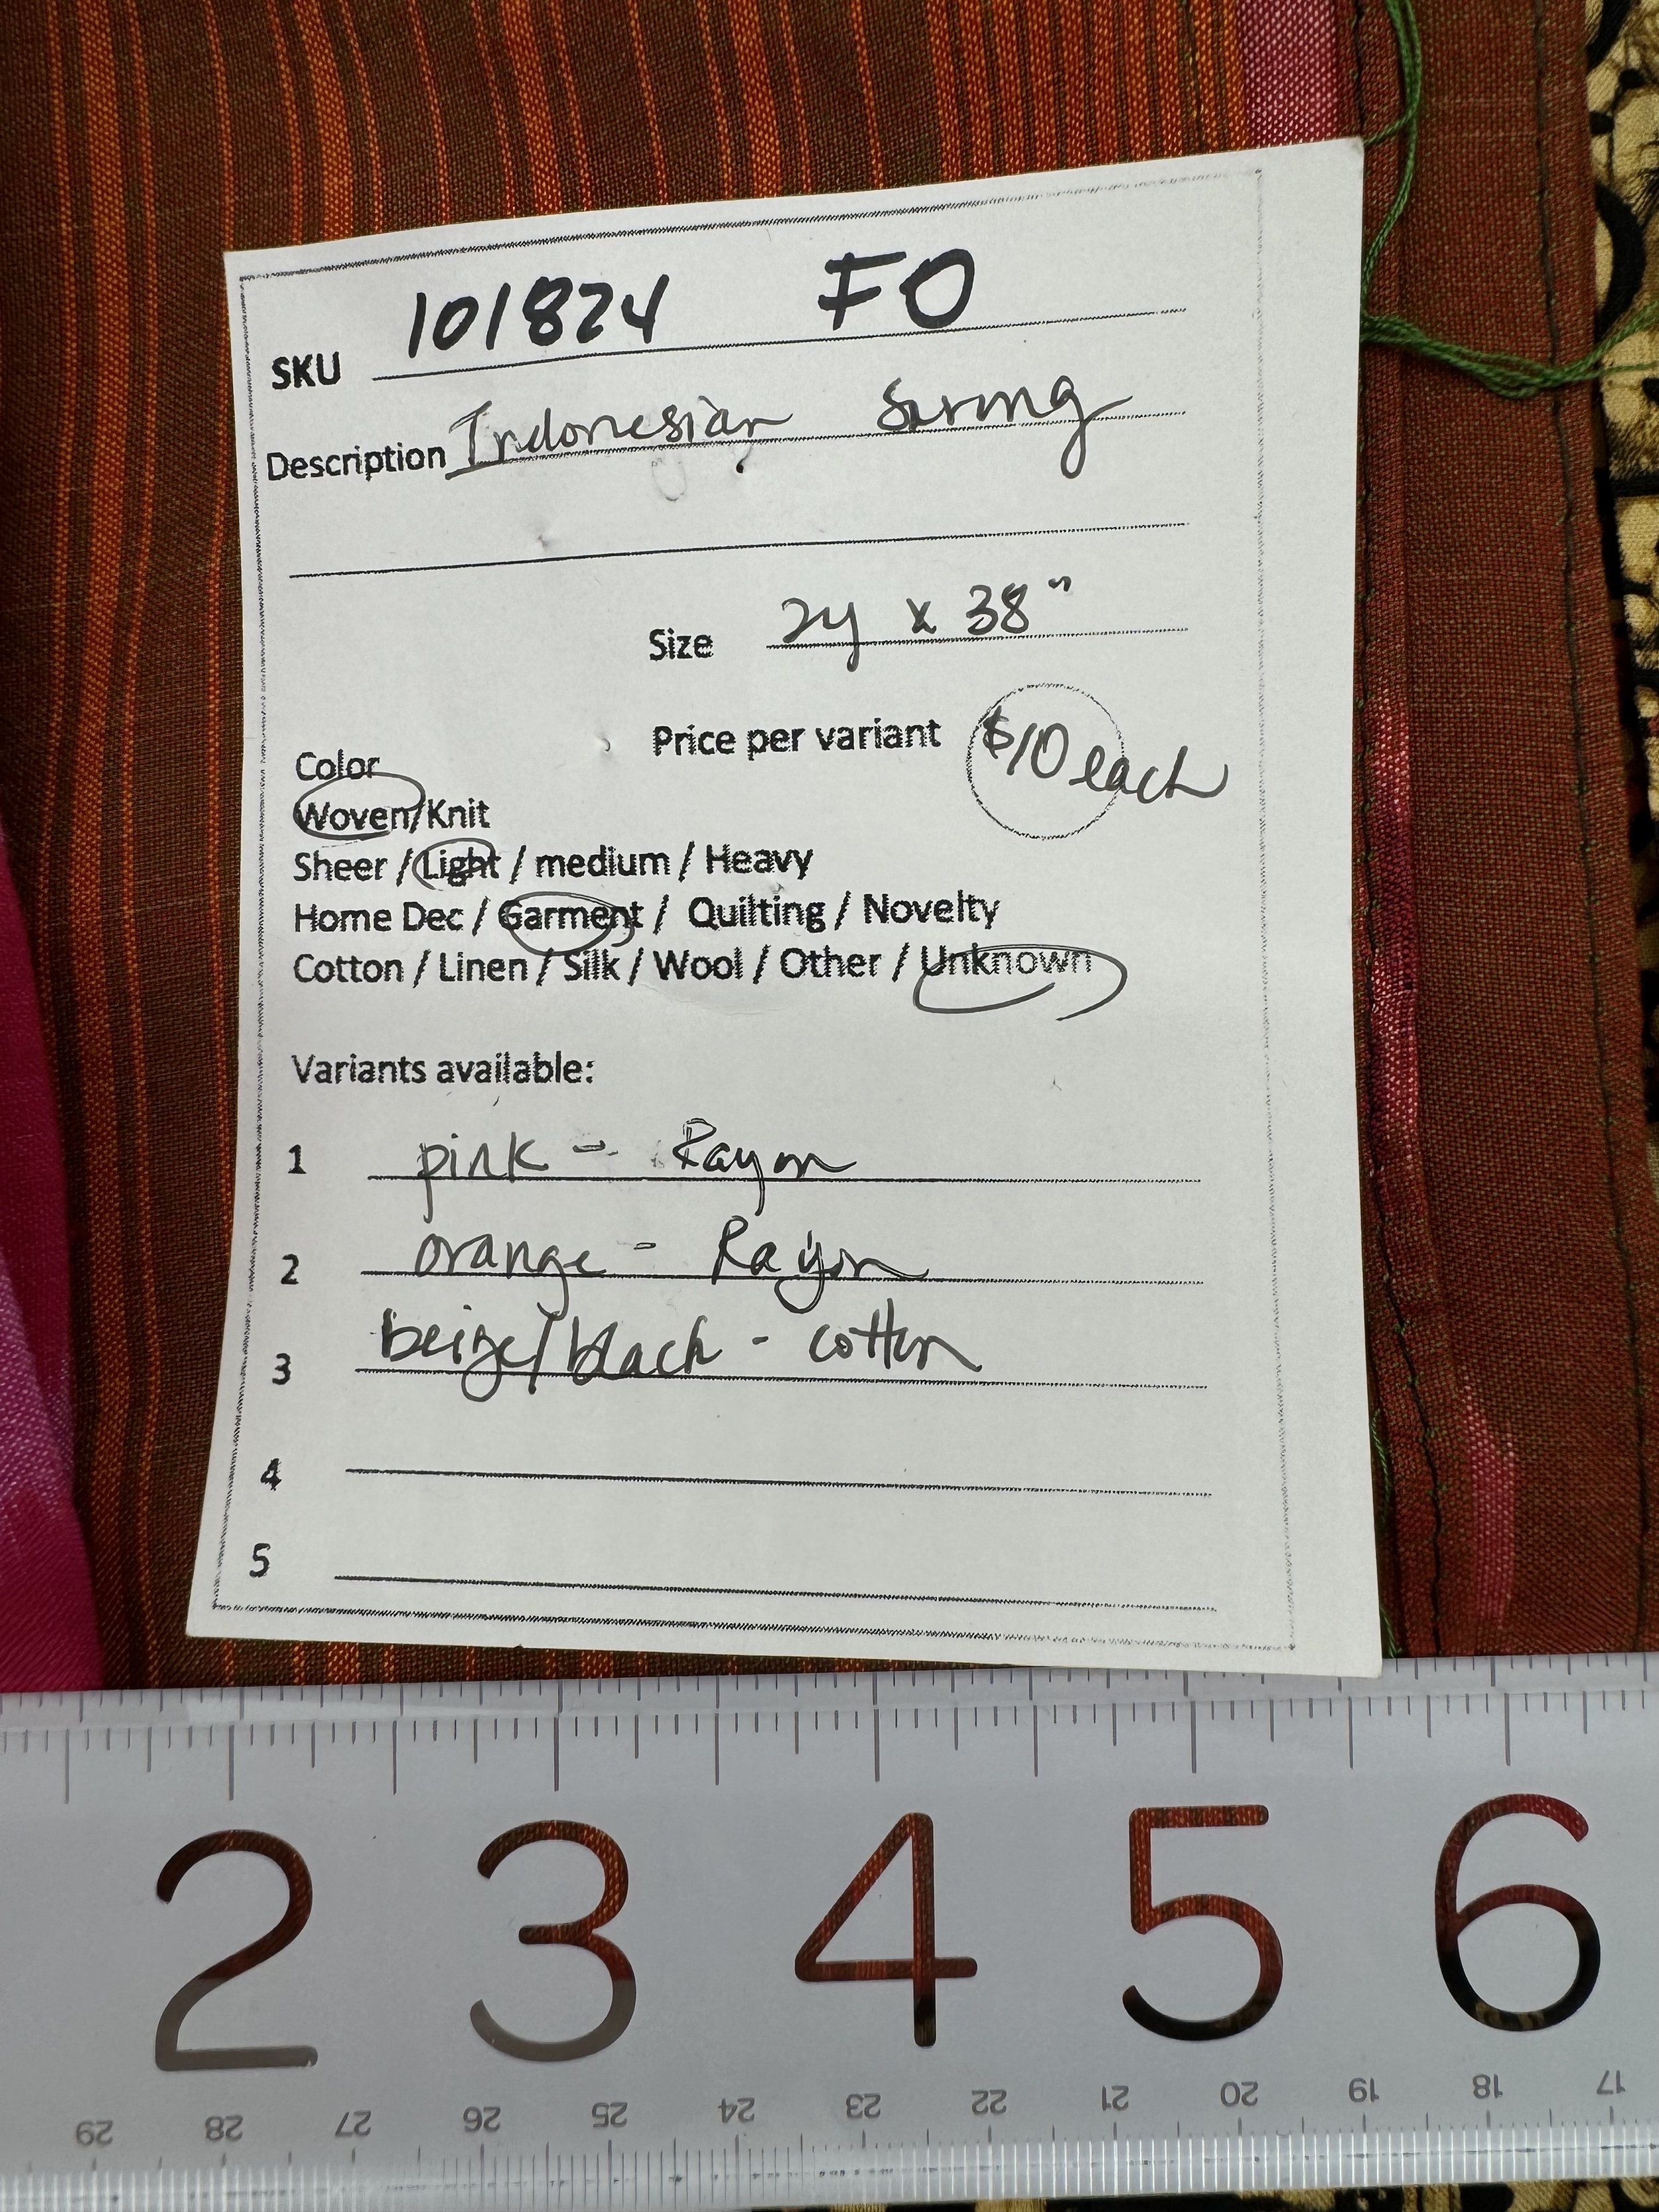 SKU 101824 FO
Description Indonesian Sarong
Size 2y x 38"
Price per variant $10 each
Color
Woven/Knit
Sheer / Light / medium / Heavy
Home Dec / Garment / Quilting / Novelty
Cotton / Linen / Silk / Wool / Other / Unknown
Variants available:
1 pink - Rayon
2 orange - Rayon
3 beige/black - cotton
4
5
2 3 4 5 6
29 28 27 26 25 24 23 22 21 20 19 18 17